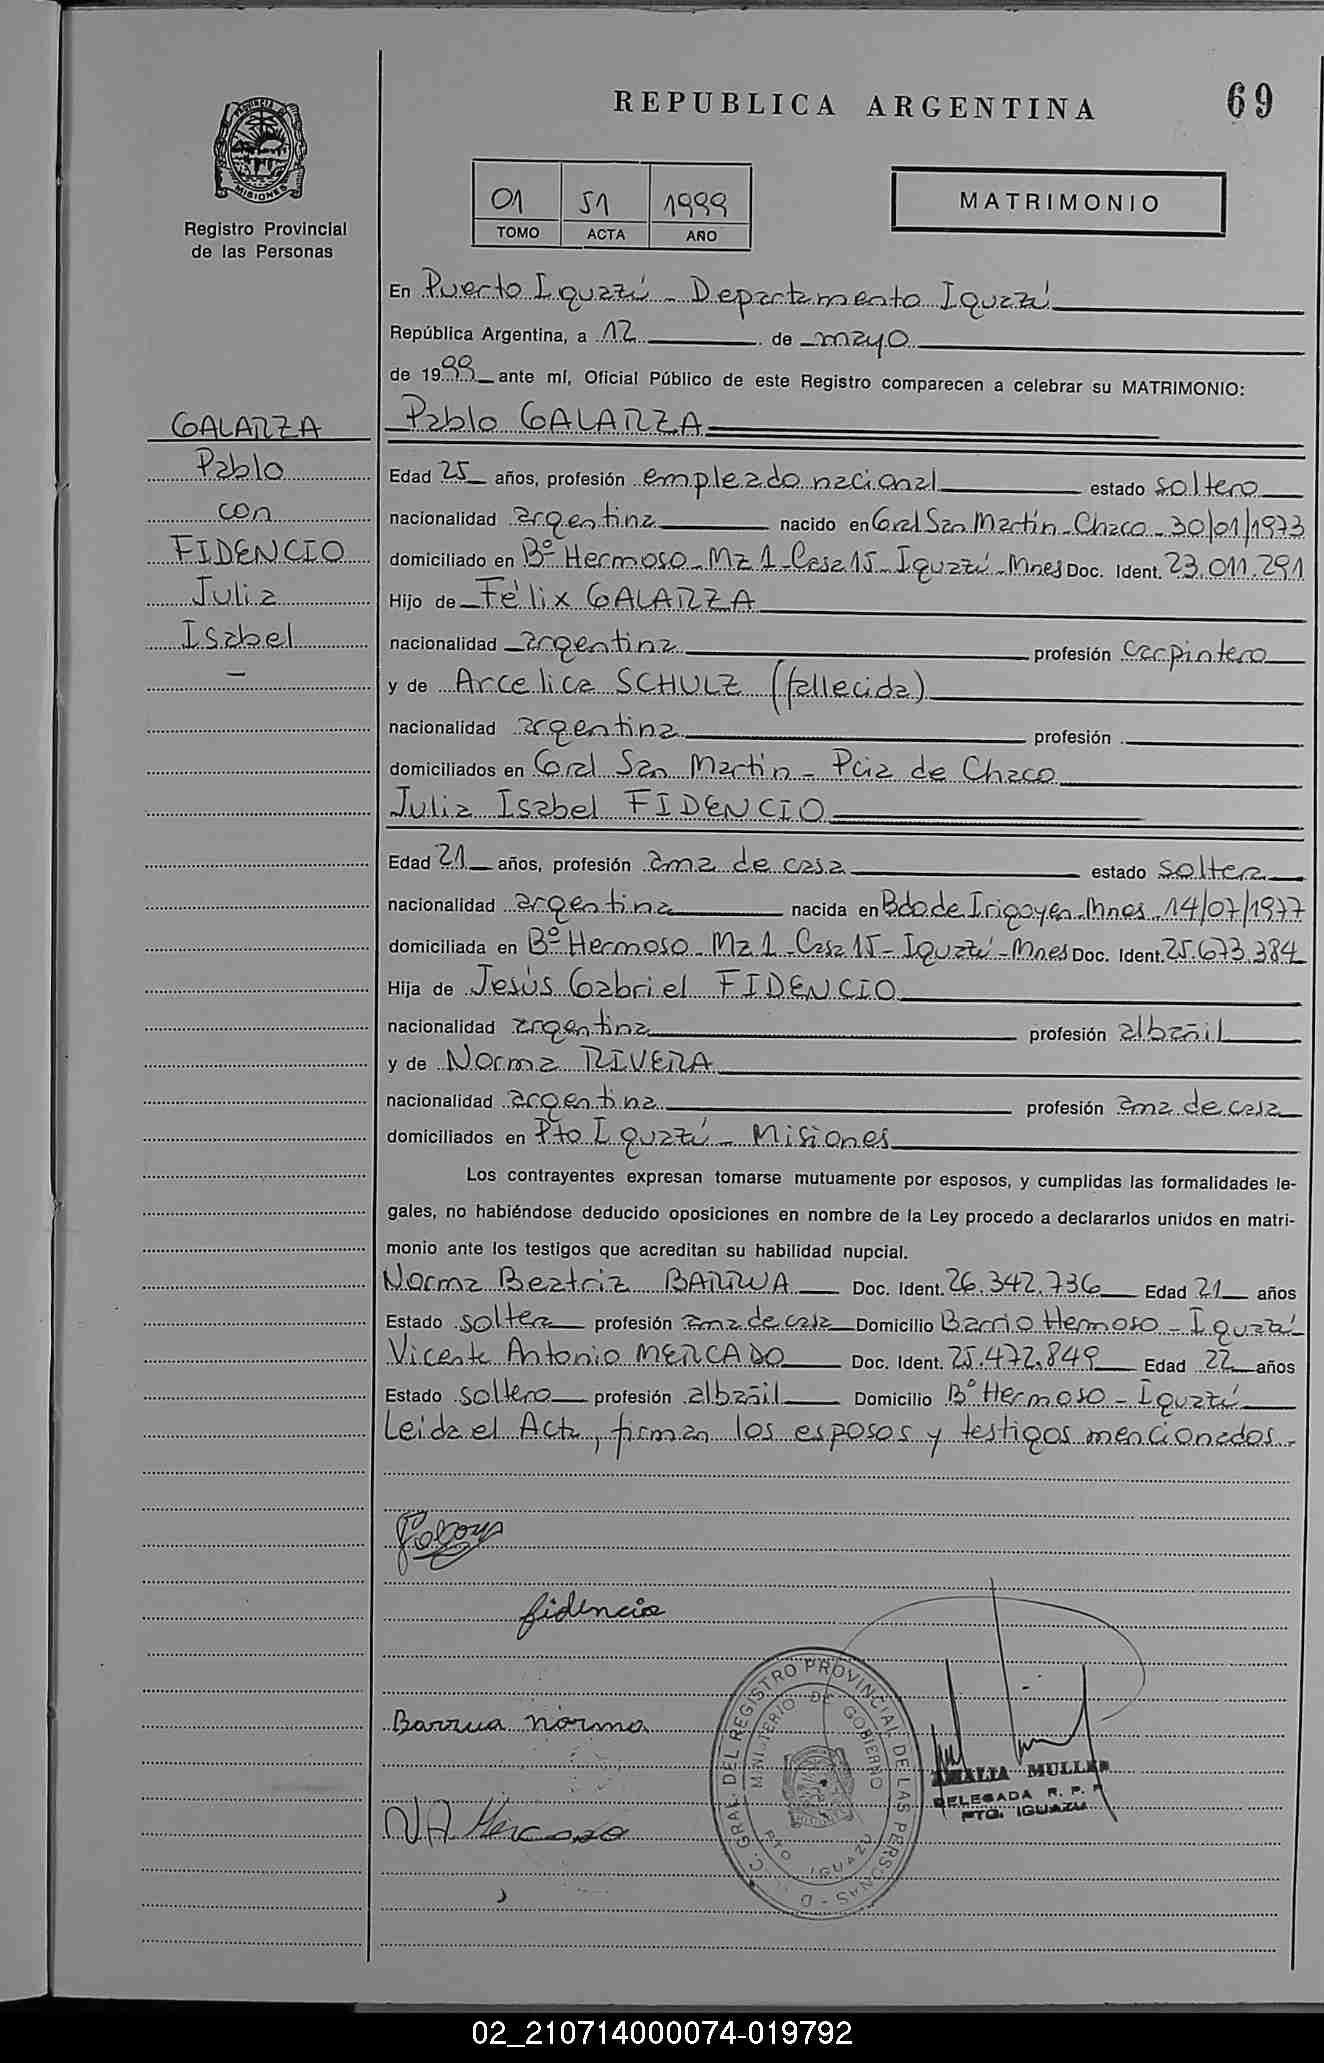 REPUBLICA ARGENTINA
69
PROVINCIA D
MISIONES
Registro Provincial
de las Personas
01 51 1999
TOMO ACTA AÑO
MATRIMONIO
En Puerto Iguazú - Departamento Iguazú
República Argentina, a 12 de mayo
de 1999 ante mí, Oficial Público de este Registro comparecen a celebrar su MATRIMONIO:
GALARZA
Pablo
con
FIDENCIO
Julia
Isabel
Pablo GALARZA
Edad 25 años, profesión empleado nacional estado soltero
nacionalidad argentina nacido en Gral San Martín - Chaco - 30/01/1973
domiciliado en Bº Hermoso - Mz 1 - Casa 15 - Iguazú - Mnes Doc. Ident. 23.011.291
Hijo de Félix GALARZA
nacionalidad argentina profesión carpintero
y de Arcelica SCHULZ (fallecida)
nacionalidad argentina profesión
domiciliados en Gral San Martín - Pcia de Chaco
Julia Isabel FIDENCIO
Edad 21 años, profesión ama de casa estado soltera
nacionalidad argentina nacida en Bdo de Irigoyen - Mnes - 14/07/1977
domiciliada en Bº Hermoso - Mz 1 - Casa 15 - Iguazú - Mnes Doc. Ident. 25.673.384
Hija de Jesús Gabriel FIDENCIO
nacionalidad argentina profesión albañil
y de Norma RIVERA
nacionalidad argentina profesión ama de casa
domiciliados en Pto Iguazú - Misiones
Los contrayentes expresan tomarse mutuamente por esposos, y cumplidas las formalidades le-
gales, no habiéndose deducido oposiciones en nombre de la Ley procedo a declararlos unidos en matri-
monio ante los testigos que acreditan su habilidad nupcial.
Norma Beatriz BARRUA Doc. Ident. 26.342.736 Edad 21 años
Estado soltera profesión ama de casa Domicilio Barrio Hermoso - Iguazú
Vicente Antonio MERCADO Doc. Ident. 25.472.849 Edad 22 años
Estado soltero profesión albañil Domicilio Bº Hermoso - Iguazú
Leida el Acta, firman los esposos y testigos mencionados.-
fidencio
Barrua norma
C. GRAL. DEL REGISTRO PROVINCIAL DE LAS PERSONAS - D
MINISTERIO DE GOBIERNO
PTO IGUAZU
AMALIA MULLER
DELEGADA R. P. P.
PTO. IGUAZU
02_210714000074-019792